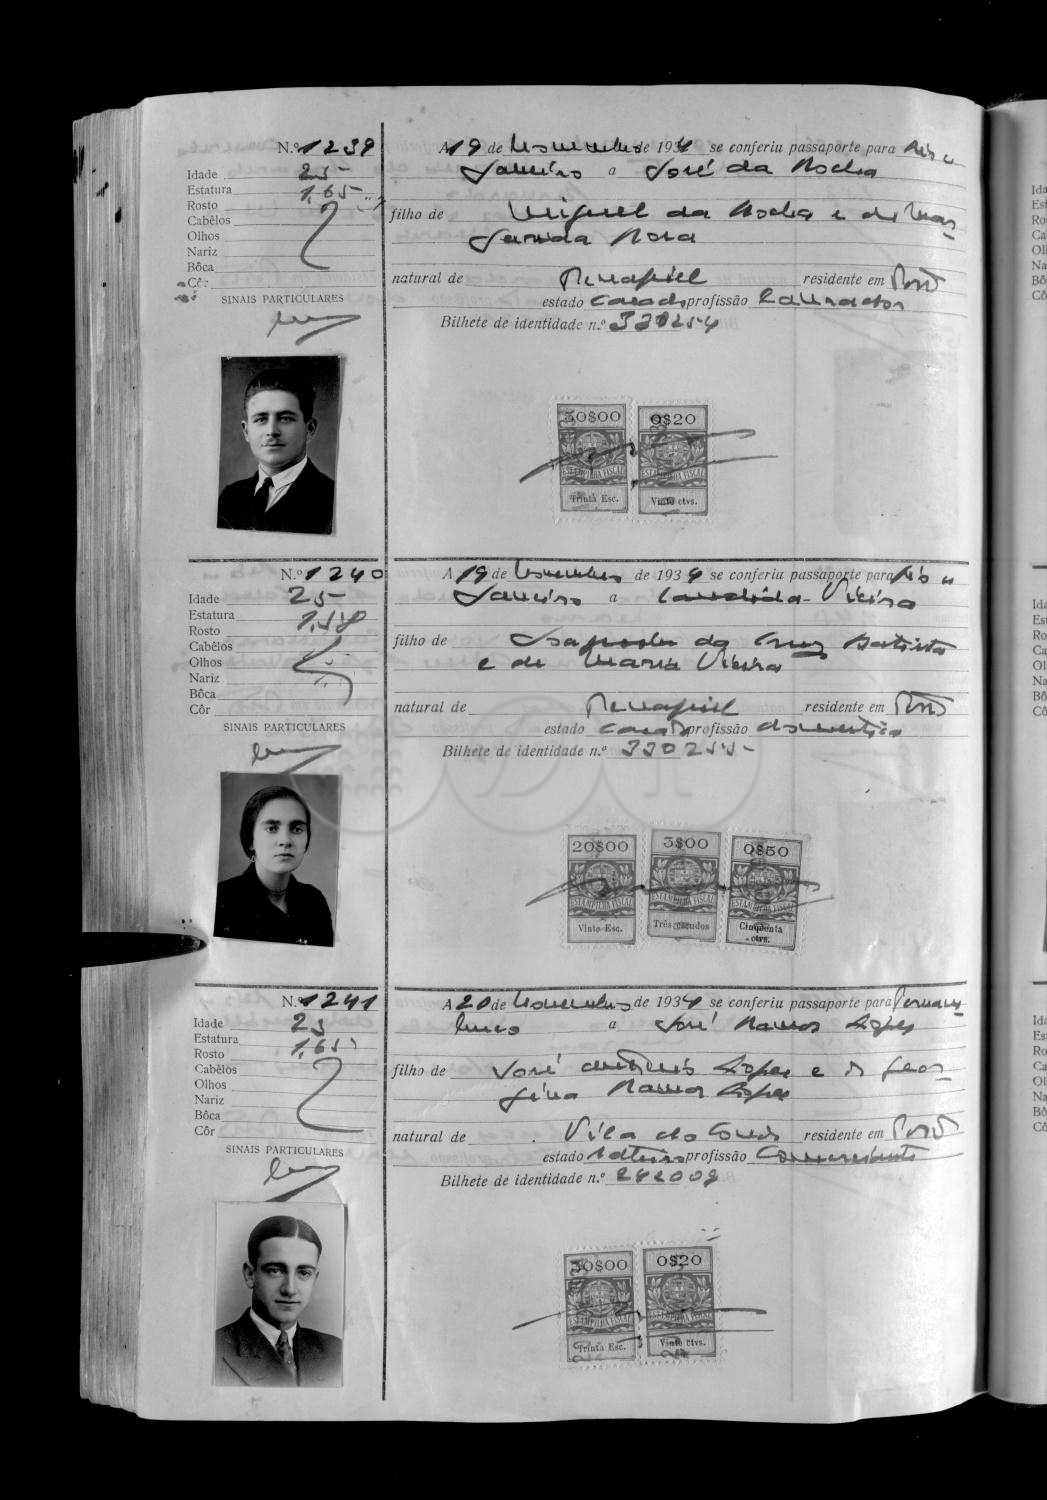 N.º 1239
Idade 25
Estatura 1,65
Rosto
Cabêlos
Olhos
Nariz
Bôca
Côr
SINAIS PARTICULARES
A 19 de Novembro de 1934 se conferiu passaporte para Rio de
Janeiro a José da Rocha
filho de Miguel da Rocha e de Mar-
garida Rosa
natural de Penafiel residente em Porto
estado casado profissão
Bilhete de identidade n.º 330254
30$00 0$20
ESTAMPILHA FISCAL ESTAMPILHA FISCAL
Trinta Esc. Vinte ctvs.
N.º 1240
Idade 25
Estatura 1,58
Rosto
Cabêlos
Olhos
Nariz
Bôca
Côr
SINAIS PARTICULARES
A 19 de Novembro de 1934 se conferiu passaporte para Rio de
Janeiro a Candida Vieira
filho de da Cruz Batista
e de Maria Vieira
natural de Penafiel residente em Porto
estado casada profissão domestica
Bilhete de identidade n.º 330255
20$00 3$00 0$50
ESTAMPILHA FISCAL ESTAMPILHA FISCAL ESTAMPILHA FISCAL
Vinte Esc. Três escudos Cinquenta
ctvs.
N.º 1241
Idade 23
Estatura 1,65
Rosto
Cabêlos
Olhos
Nariz
Bôca
Côr
SINAIS PARTICULARES
A 20 de Novembro de 1934 se conferiu passaporte para Pernam-
buco a José Ramos Lopes
filho de José Antonio Lopes e de Geor-
gina Ramos Lopes
natural de Vila do Conde residente em Porto
estado solteiro profissão Comerciante
Bilhete de identidade n.º 242009
30$00 0$20
ESTAMPILHA FISCAL ESTAMPILHA FISCAL
Trinta Esc. Vinte ctvs.